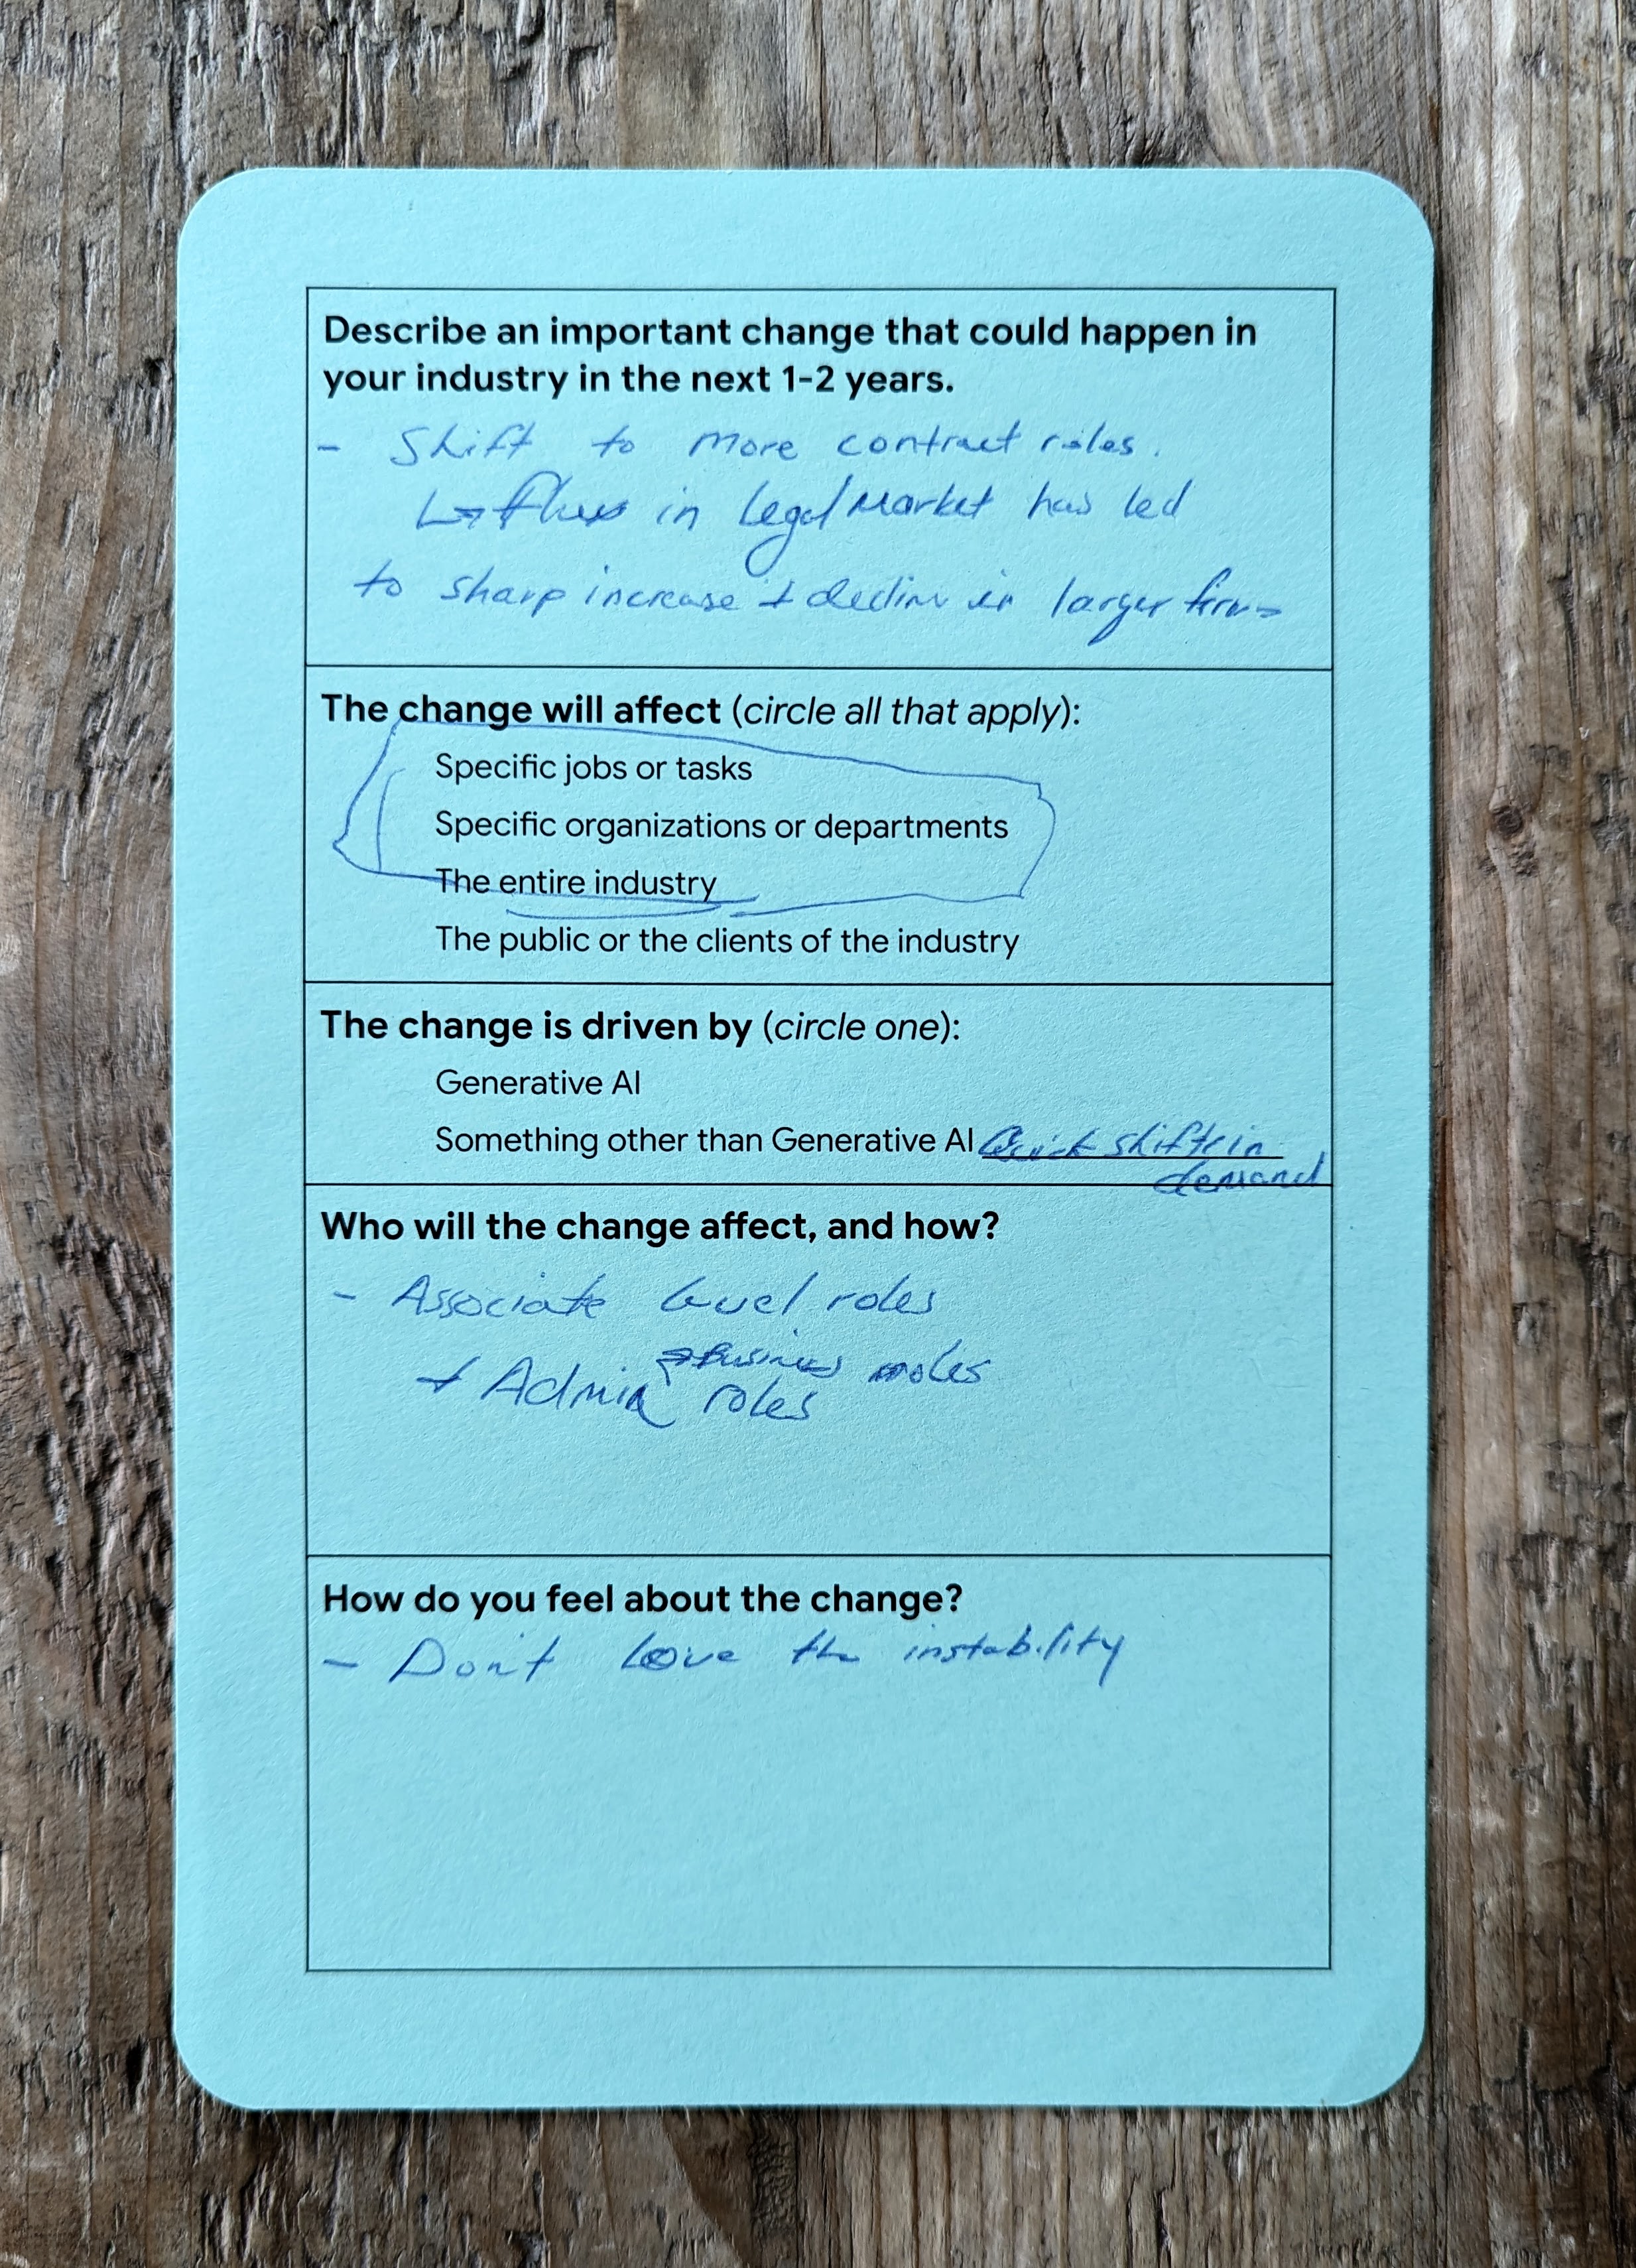 Describe an important change that could happen in
your industry in the next 1-2 years.
- Shift to more contract roles.
↳ flux in legal Market has led
to sharp increase + decline in larger firms
The change will affect (circle all that apply):
Specific jobs or tasks
Specific organizations or departments
The entire industry
The public or the clients of the industry
The change is driven by (circle one):
Generative AI
Something other than Generative AI Quick shifts in
demand
Who will the change affect, and how?
- Associate level roles
→ Business roles
+ Admin roles
How do you feel about the change?
- Don't love the instability